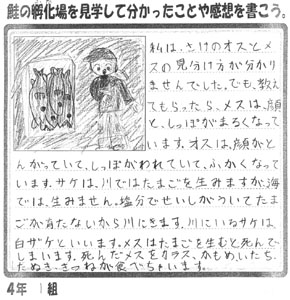 鮭の孵化場を見学して分かったことや感想を書こう。
私は、さけのオスとメ
スの見分け方が分かり
ませんでした。でも、教え
てもらったら、メスは、顔
と、しっぽがまるくなって
います。オスは、顔がと
んがっていて、しっぽがわれていて、ふかくなって
います。サケは、川ではたまごを生みますが、海
では、生みません。塩分でせいしがういてたま
ごが育たないから川にきます。川にいるサケは、
白ザケといいます。メスはたまごを生むと死んで
しまいます。死んだメスをカラス、かもめ、いたち、
たぬき、きつねが食べちゃいます。
4年 1組